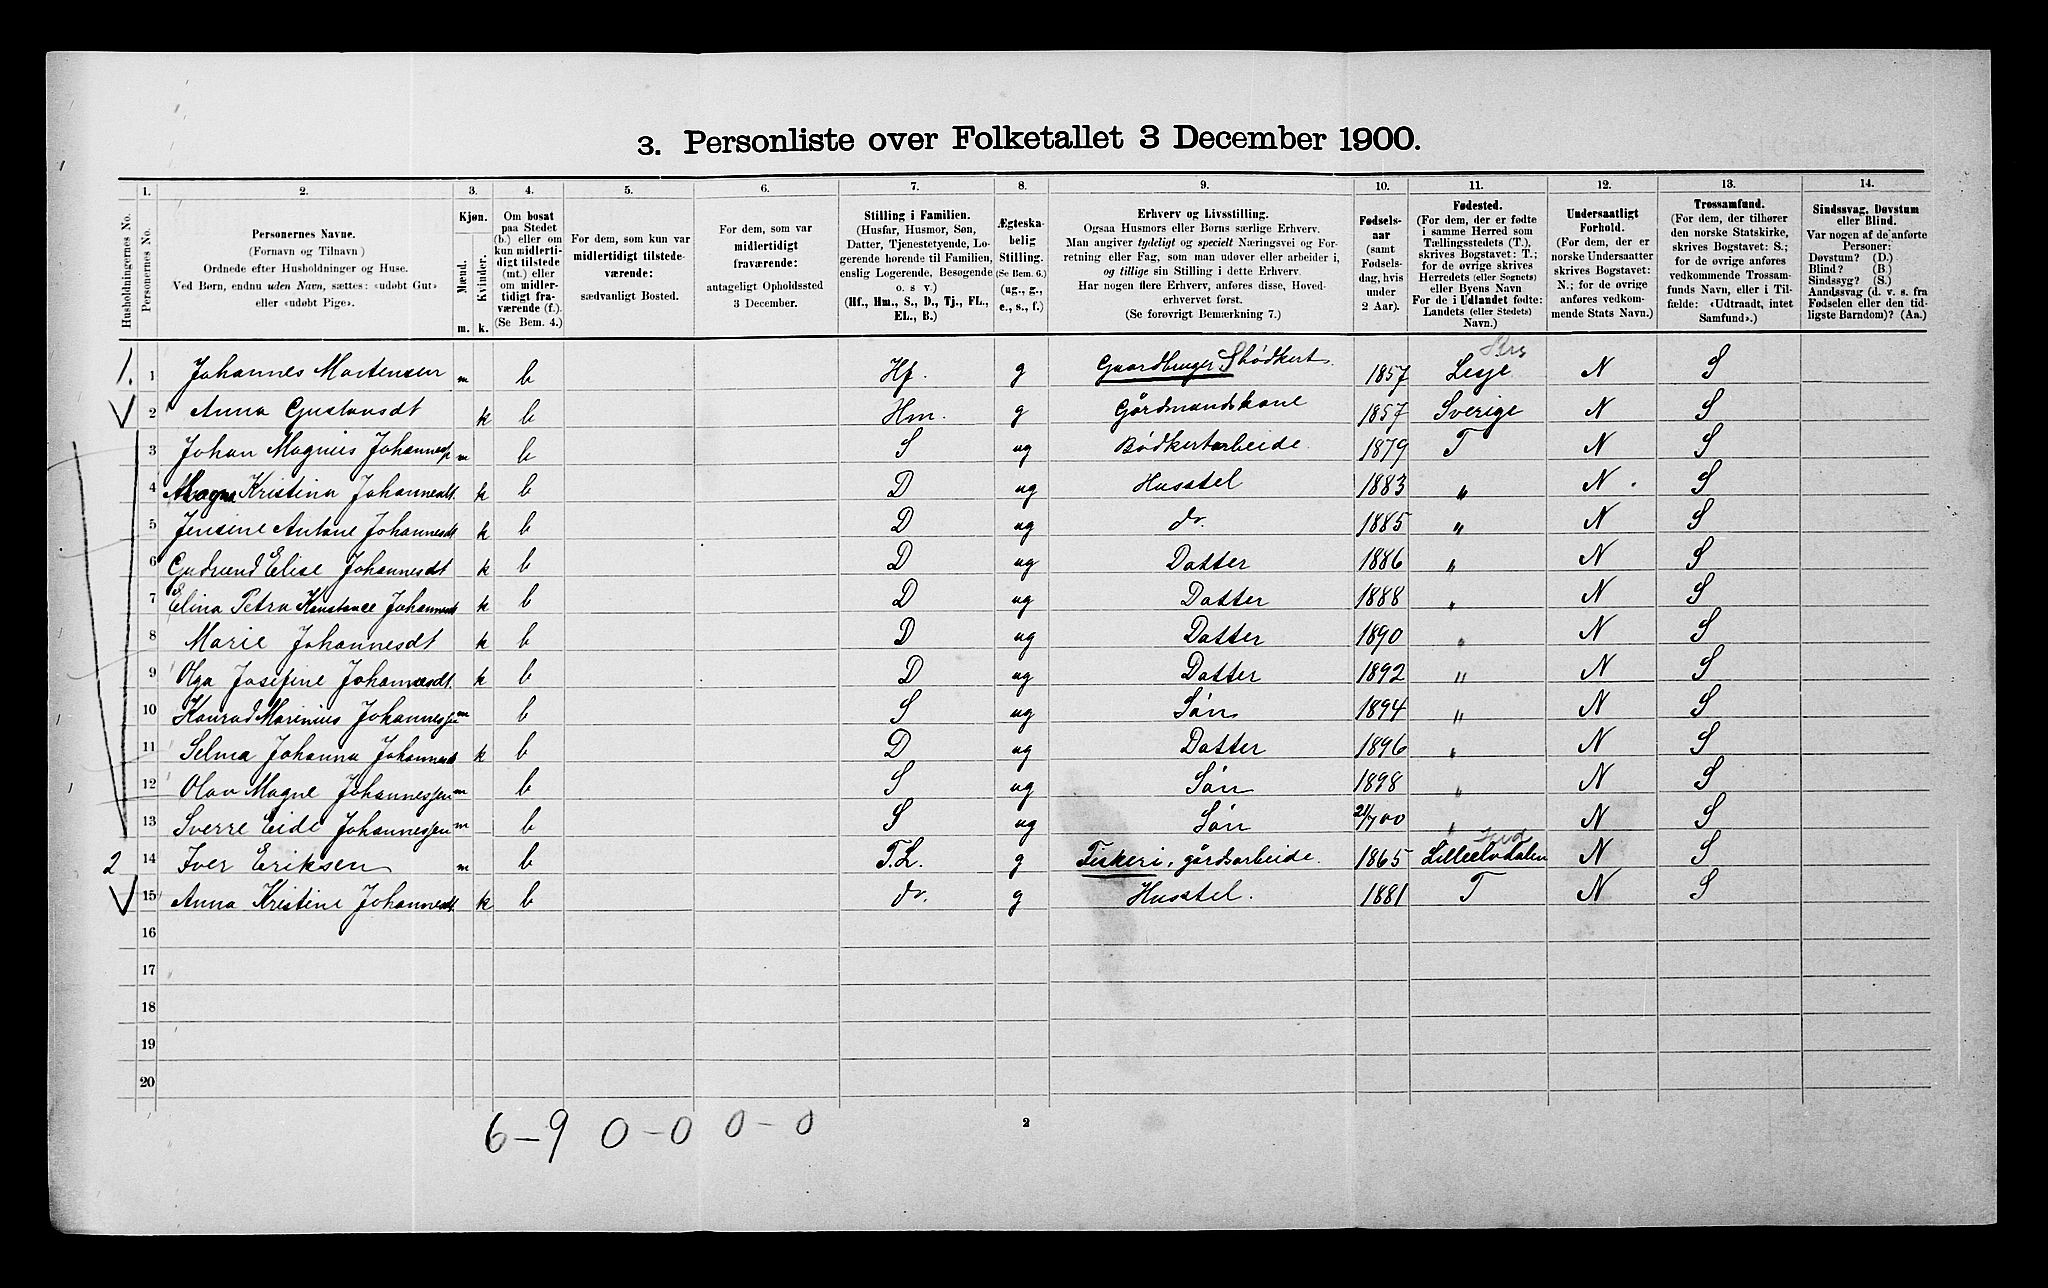 3. Personliste over Folketallet 3 December 1900.
1. 2. 3. 4. 5. 6. 7. 8. 9. 10. 11. 12. 13. 14.
Husholdningernes No.
Personernes No.
Personernes Navne.
(Fornavn og Tilnavn)
Ordnede efter Husholdninger og Huse.
Ved Børn, endnu uden Navn, sættes: «udøbt Gut»
eller «udøbt Pige».
Kjøn.
Mænd.
Kvinder.
m. k.
Om bosat
paa Stedet
(b.) eller om
kun midlerti-
digt tilstede
(mt.) eller
om midler-
tidigt fra-
værende (f.).
(Se Bem. 4.)
For dem, som kun var
midlertidigt tilstede-
værende:
sædvanligt Bosted.
For dem, som var
midlertidigt
fraværende:
antageligt Opholdssted
3 December.
Stilling i Familien.
(Husfar, Husmor, Søn,
Datter, Tjenestetyende, Lo-
gerende hørende til Familien,
enslig Logerende, Besøgende
o. s v.)
(Hf., Hm., S., D., Tj., FL.,
EL., B.)
Ægteska-
belig
Stilling.
(Se Bem. 6.)
(ug., g.,
e., s., f.)
Erhverv og Livsstilling.
Ogsaa Husmors eller Børns særlige Erhverv.
Man angiver tydeligt og specielt Næringsvei og For-
retning eller Fag, som man udøver eller arbeider i,
og tillige sin Stilling i dette Erhverv.
Har nogen flere Erhverv, anføres disse, Hoved-
erhvervet først.
(Se forøvrigt Bemærkning 7.)
Fødsels-
aar
(samt
Fødsels-
dag, hvis
under
2 Aar).
Fødested.
(For dem, der er fødte
i samme Herred som
Tællingsstedets (T.),
skrives Bogstavet: T.;
for de øvrige skrives
Herredets (eller Sognets)
eller Byens Navn
For de i Udlandet fødte:
Landets (eller Stedets)
Navn.)
Undersaatligt
Forhold.
(For dem, der er
norske Undersaatter
skrives Bogstavet:
N.; for de øvrige
anføres vedkom-
mende Stats Navn.)
Trossamfund.
(For dem, der tilhører
den norske Statskirke,
skrives Bogstavet: S.;
for de øvrige anføres
vedkommende Trossam-
funds Navn, eller i Til-
fælde: «Udtraadt, intet
Samfund».)
Sindssvag, Døvstum
eller Blind.
Var nogen af de anførte
Personer:
Døvstum? (D.)
Blind? (B.)
Sindssyg? (S.)
Aandssvag (d. v. s. fra
Fødselen eller den tid-
ligste Barndom)? (Aa.)
1. 1 Johannes Mortensen m b Hf. g Gaardbruger Bødkert. 1857 Lesje N S
2 Anna Gustavsdt k b Hm. g Gårdmandskone 1857 Sverige N S
3 Johan Magnus Johannes m b S ug Bødkertarbeide. 1879 T N S
4 Magna Kristina Johannesdt. k b D ug Husstel 1883 " N S
5 Jensine Antone Johannesdt k b D ug do. 1885 " N S
6 Gudrund Elise Johannesdt k b D ug Datter 1886 " N S
7 Elina Petra Konstance Johannesdt k b D ug Datter 1888 " N S
8 Marie Johannesdt k b D ug Datter 1890 " N S
9 Olga Josefine Johannesdt. k b D ug Datter 1892 " N S
10 Konrad Marinius Johannessen m b S ug Søn 1894 " N S
11 Selma Johanna Johannesdt k b D ug Datter 1896 " N S
12 Olav Magne Johannessen m b S ug Søn 1898 " N S
13 Sverre Eide Johannessen m b S ug Søn 21/7 00 " N S
2 14 Iver Eriksen m b F.L. g Fiskeri, gårdsarbeide. 1865 Lilleelvdalen N S
15 Anna Kristine Johannesdt k b do. g Husstel. 1881 T N S
16
17
18
19
20
6-9 0-0 0-0
2